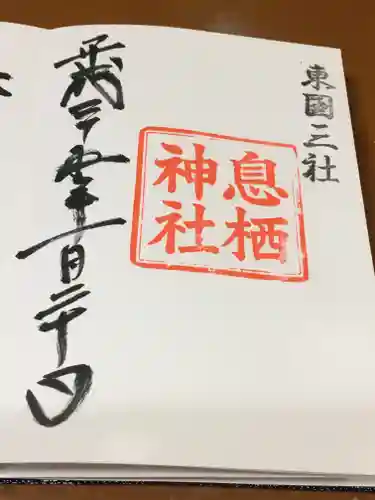 東國三社
息栖
神社
平成三十年十一月二十日